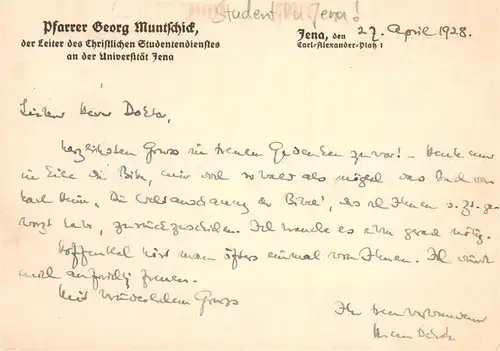 Student in Jena!
Pfarrer Georg Muntschick,
der Leiter des Christlichen Studentendienstes
an der Universität Jena
Jena, den 27. April 1928.
Carl-Alexander-Platz 1
Lieber Herr Doktor,
herzlichsten Gruss in treuem Gedenken zuvor! - Heute nur
in Eile die Bitte, mir doch sobald als möglich das Buch von
Karl Heim, "Die Weltanschauung der Bibel", das ich Ihnen s. Zt. ge-
borgt habe, zurückzuschicken. Ich brauche es eben gerade nötig.
Hoffentlich hört man öfters einmal von Ihnen. Ich würde
mich aufrichtig freuen.
Mit brüderlichem Gruss
Ihr treu verbundener